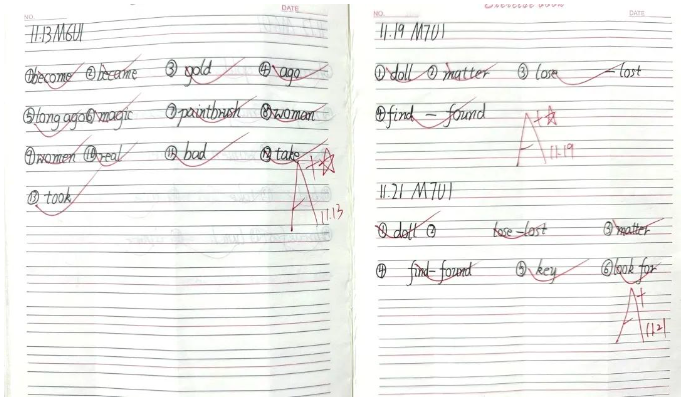 DATE
11.13 M6U1
①become ②became ③gold ④ago
⑤long ago ⑥magic ⑦paintbrush ⑧woman
⑨women ⑩real ⑪bad ⑫take
⑬took
A+☆
11.13
NO.
DATE
11.19 M7U1
①doll ②matter ③lose — lost
④find — found
A+☆
11.19
11.21 M7U1
①doll ② lose—lost ③matter
④ find—found ⑤key ⑥look for
A+
11.21